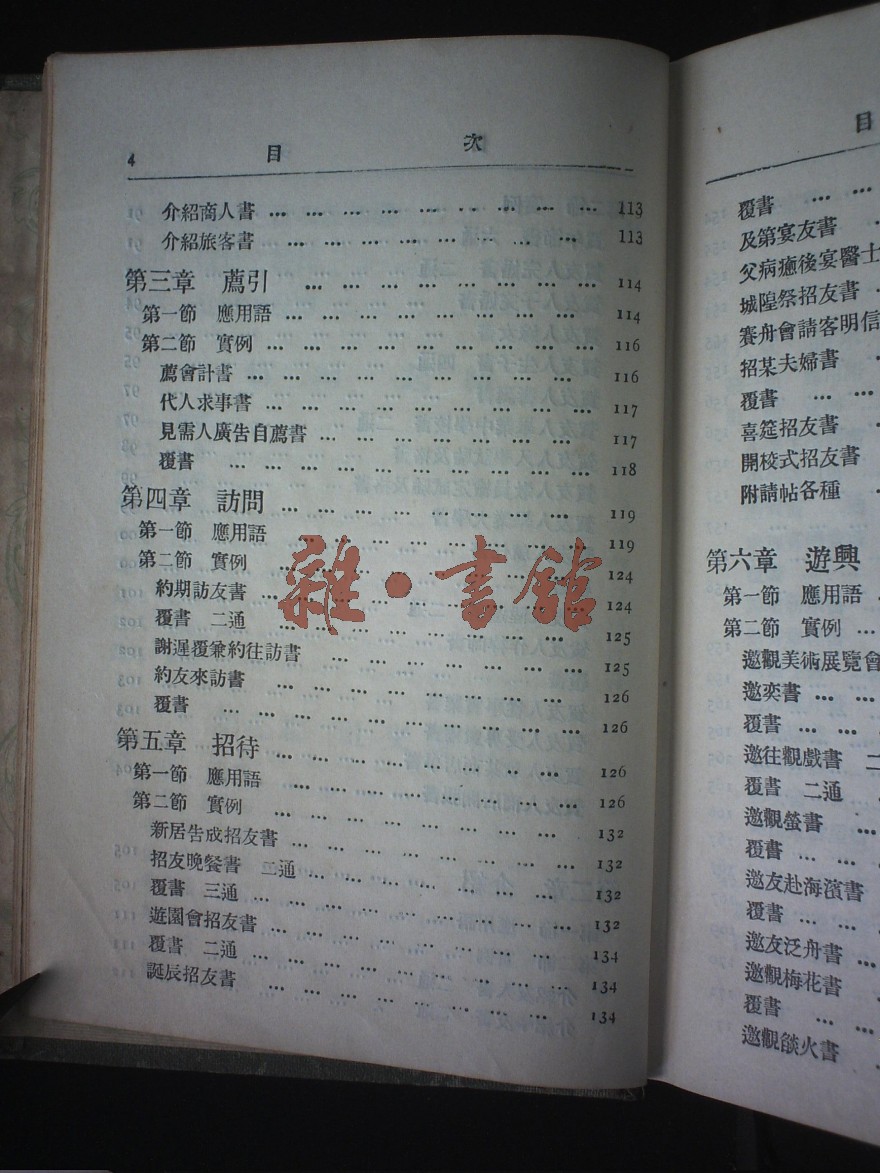 4 目 次
介紹商人書 … … … … … … … … … … 113
介紹旅客書 … … … … … … … … … 113
第三章 薦引 … … … … … … … … … 114
第一節 應用語 … … … … … … … … … 114
第二節 實例 … … … … … … … … … 116
薦會計書 … … … … … … … … … … 116
代人求事書 … … … … … … … … … 117
見需人廣告自薦書 … … … … … … … … 117
覆書 … … … … … … … … … … 118
第四章 訪問 … … … … … … … … … 119
第一節 應用語 … … … … … … … … … 119
第二節 實例 … … … … … … … … … 124
約期訪友書 … … … … … … … … … 124
覆書 二通 … … … … … … … … … 125
謝遲覆兼約往訪書 … … … … … … … … 125
約友來訪書 … … … … … … … … … 126
覆書 … … … … … … … … … … 126
第五章 招待 … … … … … … … … … 126
第一節 應用語 … … … … … … … … … 126
第二節 實例 … … … … … … … … … 132
新居告成招友書 … … … … … … … … 132
招友晚餐書 二通 … … … … … … … … 132
覆書 三通 … … … … … … … … … 132
遊園會招友書 … … … … … … … … … 134
覆書 二通 … … … … … … … … … 134
誕辰招友書 … … … … … … … … … 134
雜·書館
目
覆書 … … …
及第宴友書 …
父病癒後宴醫士
城隍祭招友書 …
賽舟會請客明信
招某夫婦書 …
覆書 … … …
喜筵招友書 …
開校式招友書
附請帖各種 …
第六章 遊興
第一節 應用語 …
第二節 實例 …
邀觀美術展覽會
邀奕書 … …
覆書 … … …
邀往觀戲書 二
覆書 二通 …
邀觀螢書 …
覆書 … …
邀友赴海濱書
覆書 … …
邀友泛舟書 …
邀觀梅花書
覆書 … …
邀觀燄火書